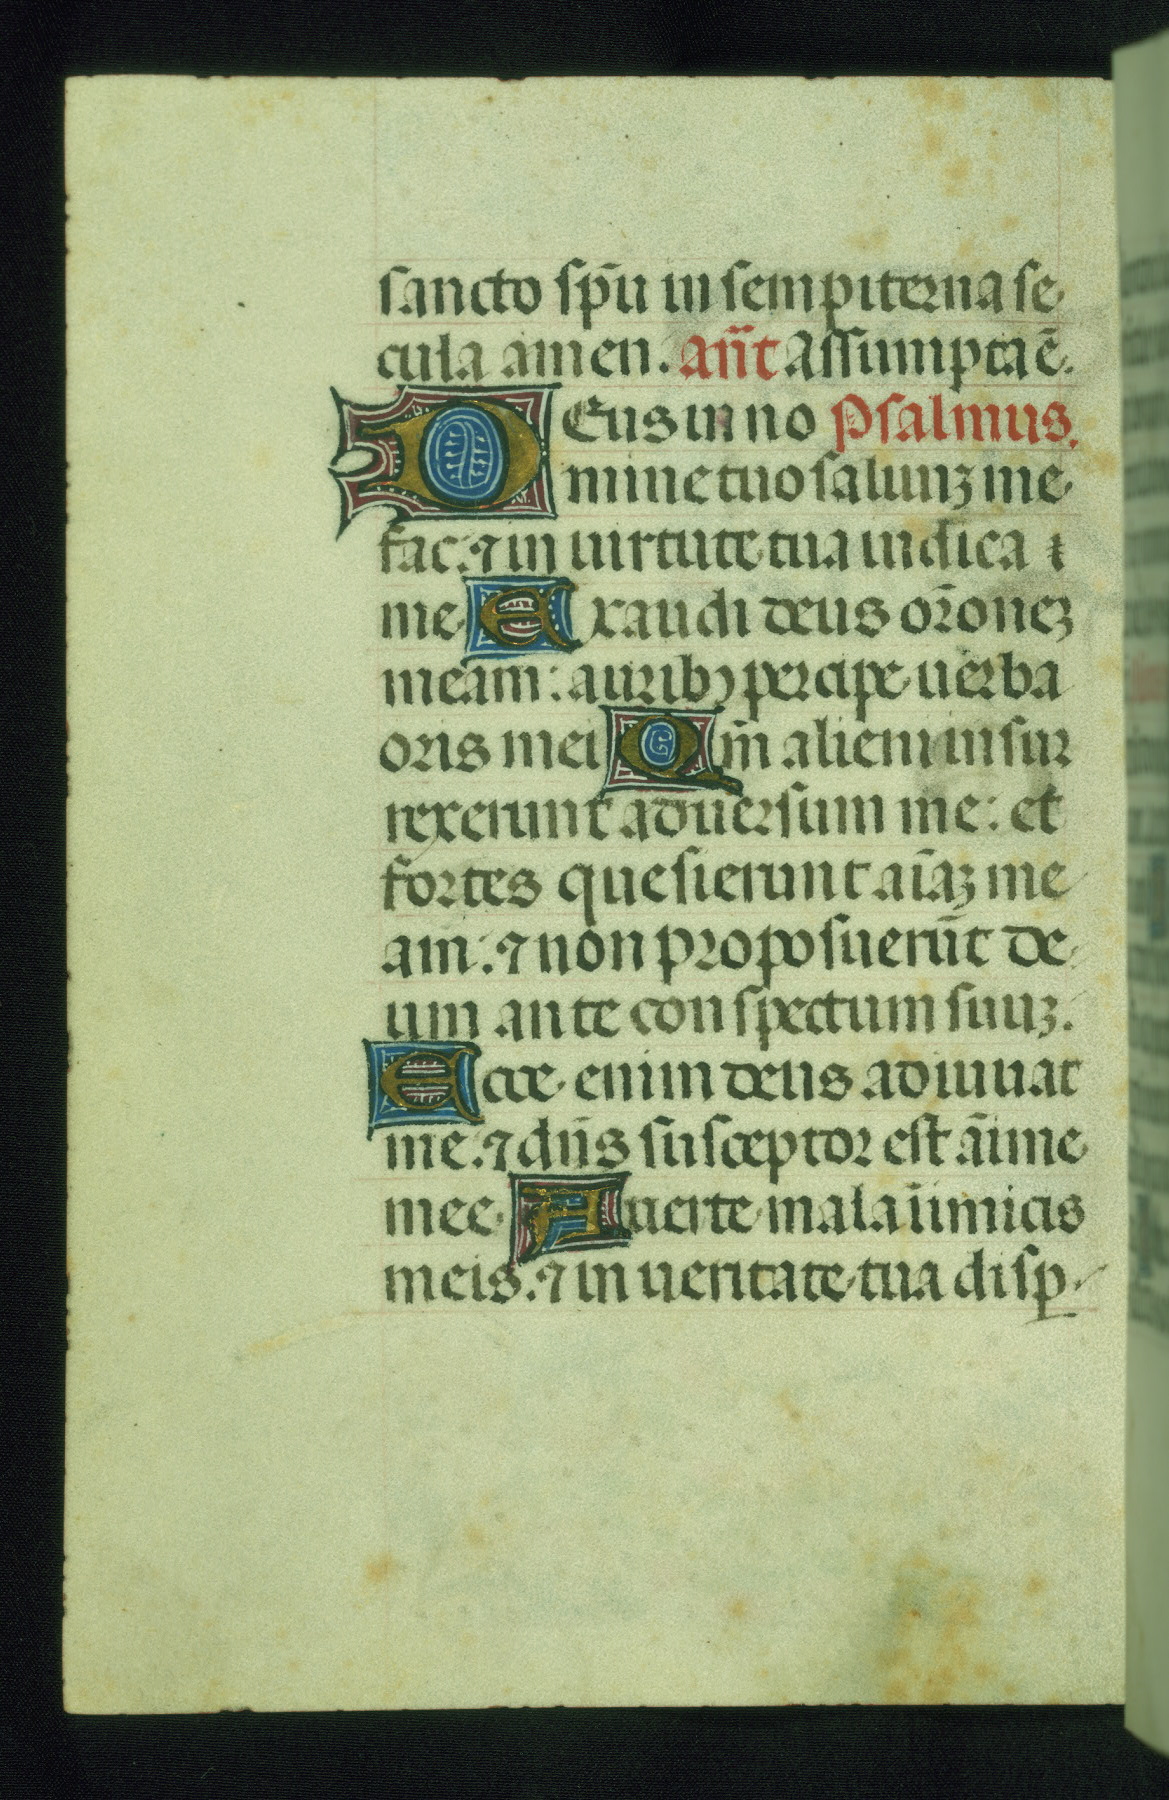 sancto sp̄u in sempiterna se
cula amen. an̄t Assumpta ē.
DEus in no Psalmus.
mine tuo saluuꝫ me
fac: ⁊ in uirtute tua iudica
me Exaudi deus or̄oneꝫ
meam: auribꝰ percipe uerba
oris mei Qm̄ alieni insur
rexerunt aduersum me: et
fortes quesierunt aīaꝫ me
am: ⁊ non proposuerūt de
um ante conspectum suuꝫ.
Ecce enim deus adiuuat
me: ⁊ dn̄s susceptor est āime
mee Auerte mala īimicis
meis: ⁊ in ueritate tua disꝑ